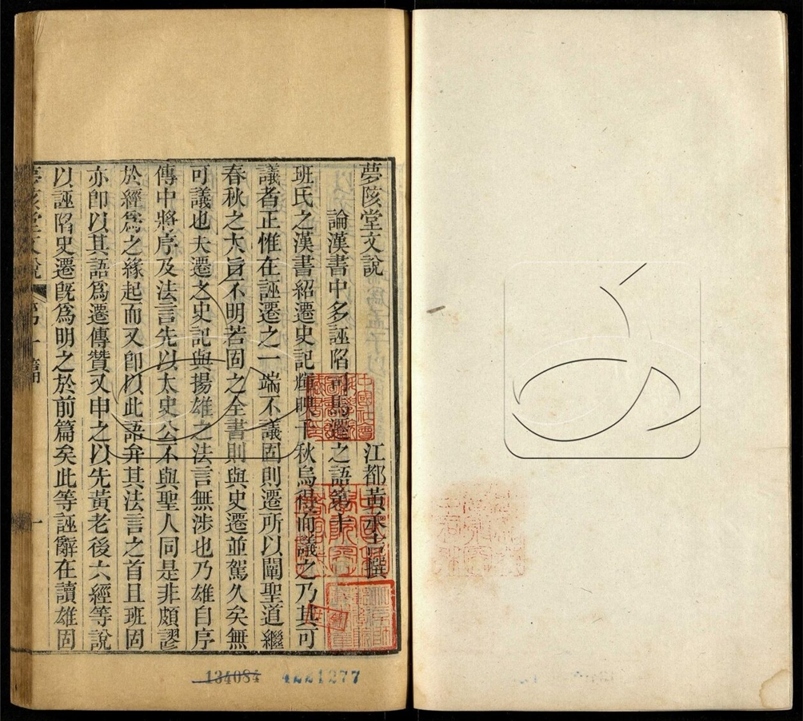 夢陔堂文說
江都黃承吉撰
論漢書中多誣陷司馬遷之語第十
班氏之漢書紹遷史記輝映千秋烏得而議之乃其可
議者正惟在誣遷之一端不議固則遷所以闡聖道繼
春秋之大旨不明若固之全書則與史遷並駕久矣無
可議也夫遷之史記與揚雄之法言無涉也乃雄自序
傳中將序及法言先以太史公不與聖人同是非頗謬
於經爲之緣起而又卽以此語弁其法言之首且班固
亦卽以其語爲遷傳贊又申之以先黃老後六經等說
以誣陷史遷旣爲明之於前篇矣此等誣辭在讀雄固
夢陔堂文說
第十篇
一
134084 4221277